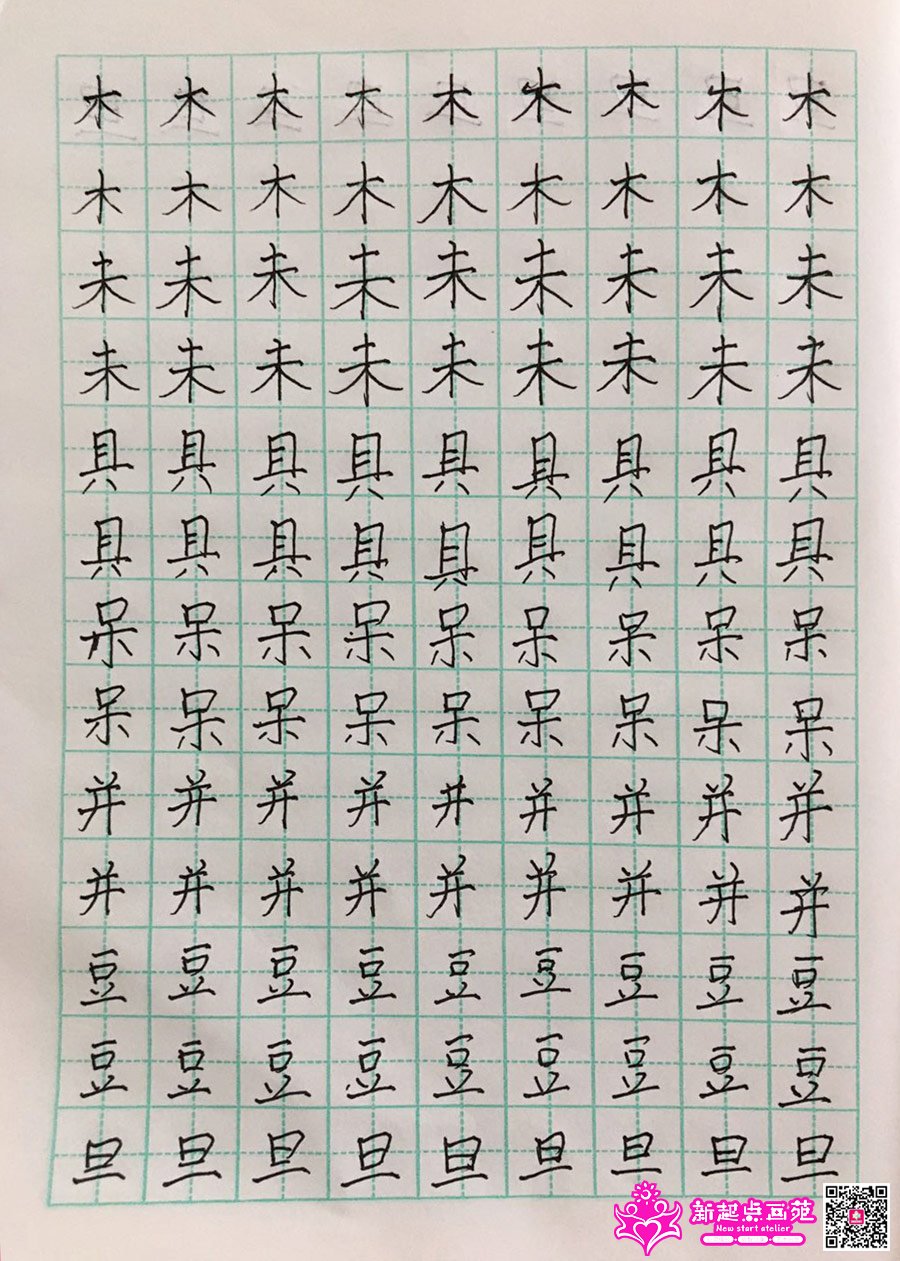 木木木木木木木木木
木木木木木木木木木
未未未未未未未未未
未未未未未未未未未
具具具具具具具具具
具具具具具具具具具
呆呆呆呆呆呆呆呆呆
呆呆呆呆呆呆呆呆呆
并并并并并并并并并
并并并并并并并并并
豆豆豆豆豆豆豆豆豆
豆豆豆豆豆豆豆豆豆
旦旦旦旦旦旦旦旦旦
新起点画苑
New start atelier